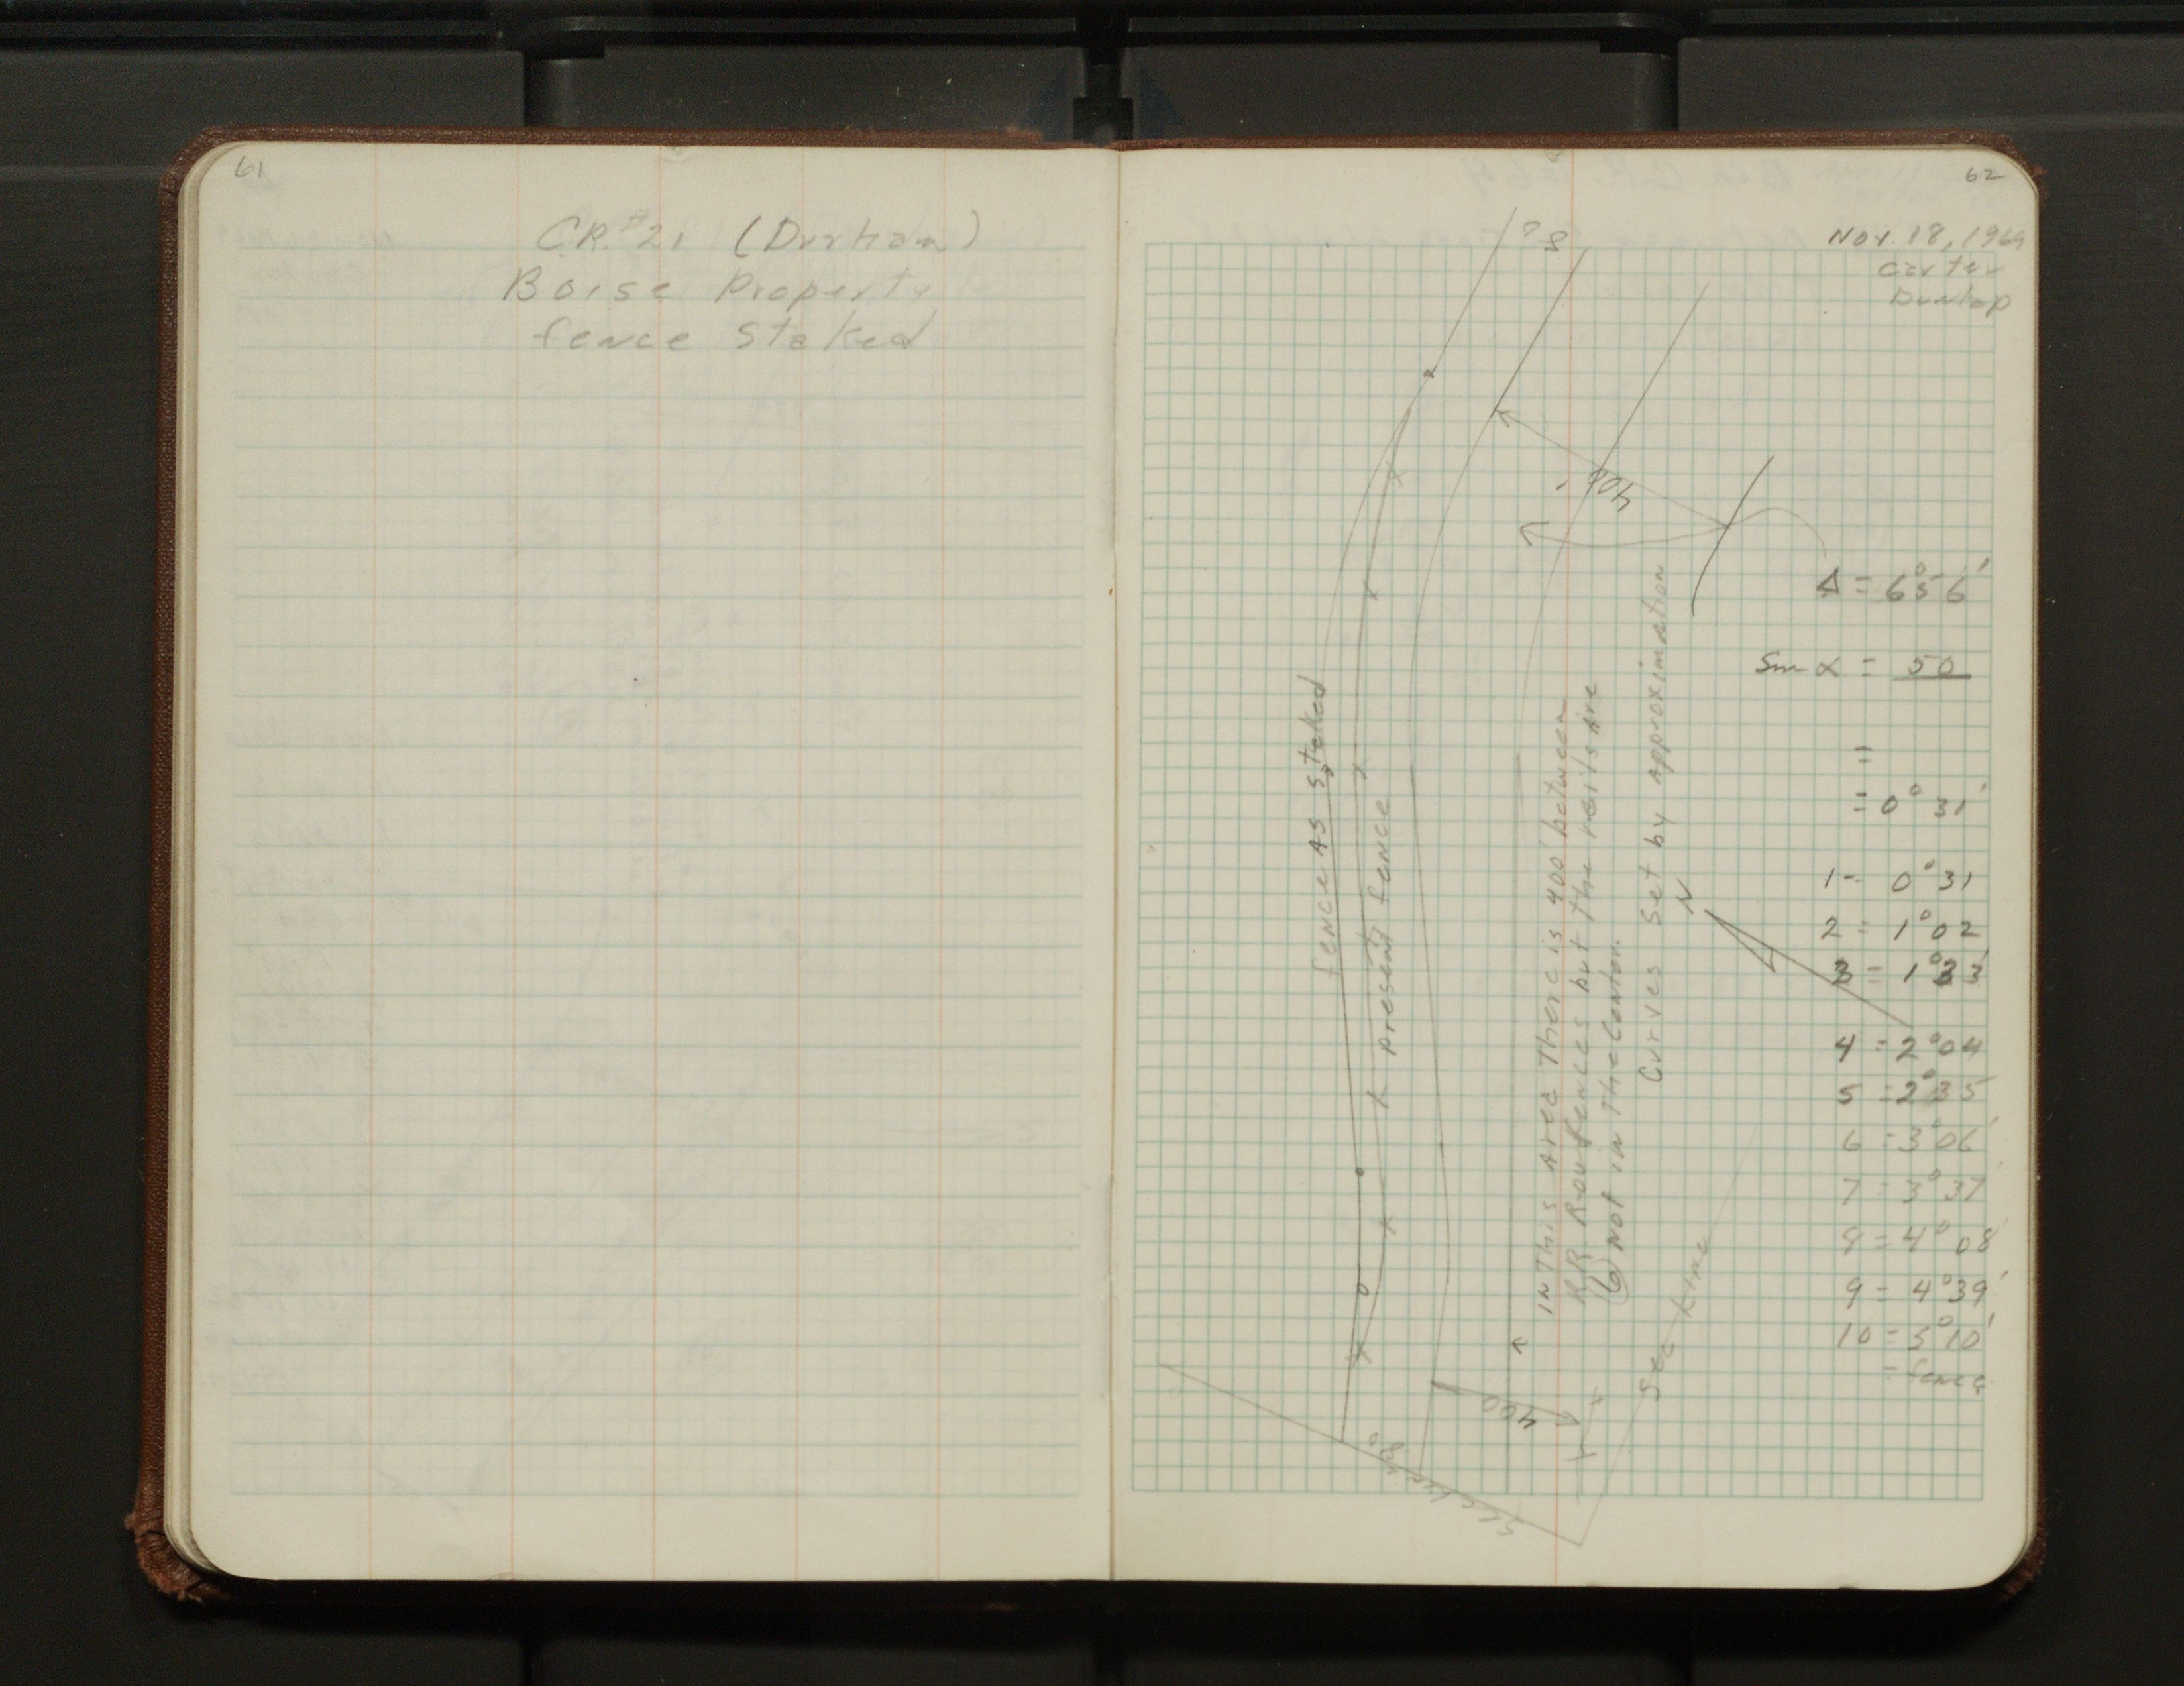 61
C.R. #21 (Durham)
Boise Property
fence staked
62
Nov. 18, 1969
Carter
Dunlap
? 8
400
Δ = 6°56'
Sin α = 50
=
= 0° 31'
1 = 0° 31
2 = 1° 02
3 = 1° 33'
4 = 2° 04
5 = 2° 35
6 = 3° 06'
7 = 3° 37'
8 = 4° 08'
9 = 4° 39'
10 = 5° 10'
= fence
fence as staked
present fence
In this area there is 400' between
RR Row fences but the rails are
not in the center.
Curves set by approximation
N
Sec Line
400